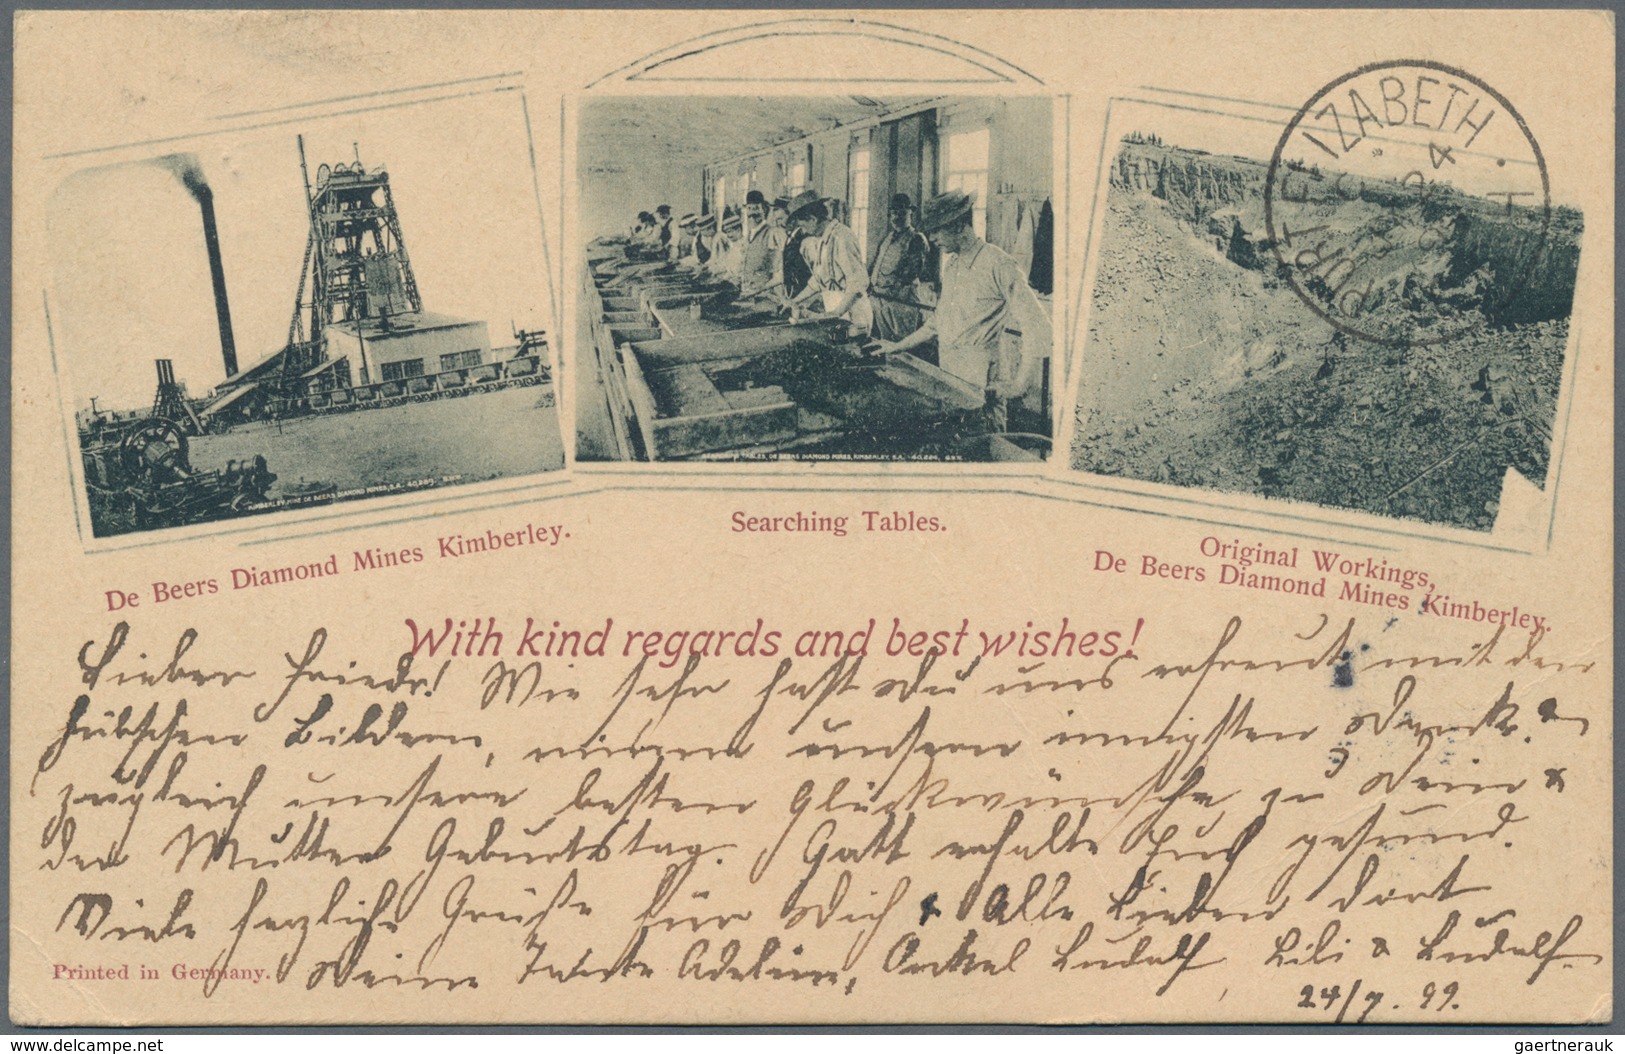 PORT ELIZABETH
KIMBERLEY MINE DE BEERS DIAMOND MINES, S.A. 40,285. G.W.W.
SEARCHING TABLES, DE BEERS DIAMOND MINES, KIMBERLEY, S.A. 40,286. G.W.W.
De Beers Diamond Mines Kimberley.
Searching Tables.
Original Workings,
De Beers Diamond Mines Kimberley.
With kind regards and best wishes!
Lieber Friedr! Wie sehr hast Du uns erfreut mit den
hübschen Bildern, nimm unsern innigsten Dank. &
zugleich unsere besten Glückwünsche zu Dein &
der Mutter Geburtstag. Gott erhalte Euch gesund.
Viele herzliche Grüße für Dich & Alle Lieben dort
Deine Tante Adeline, Onkel Ludolf Lili & Ludolf.
Printed in Germany.
24/7. 99.
delcampe.net
gaertnerauk